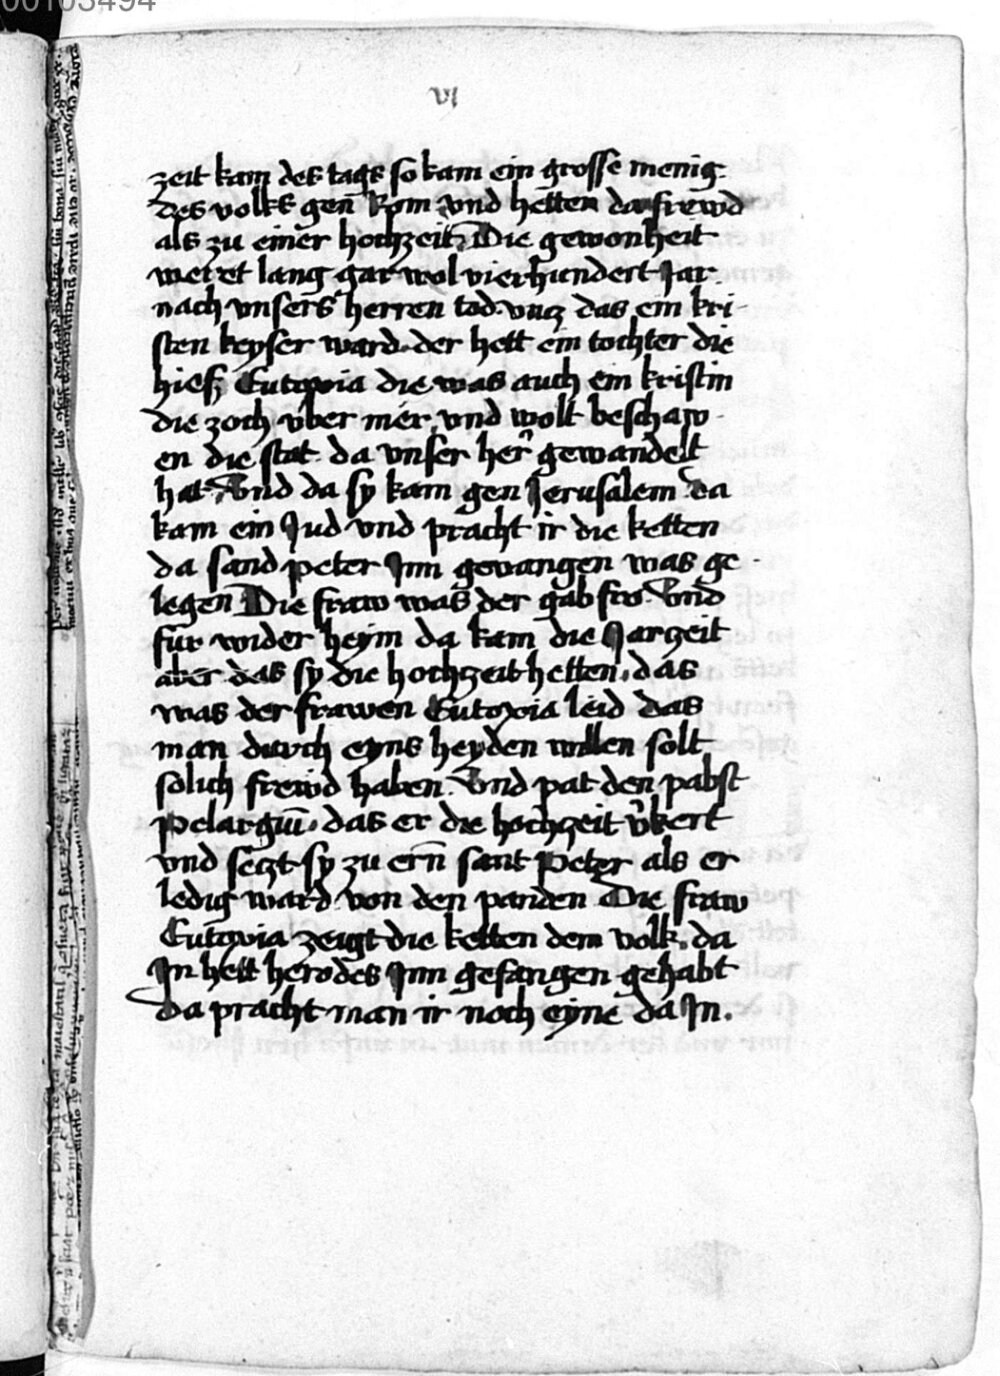 00103494
vi
zeit kam des tags so kam ein grosse menig
des volks gen̄ Rom vnd hetten da frewd
als zu einer hochzeit. Die gewonheit
weret lang gar wol vierhundert Jar
nach vnsers herren tod. vnz das ein kri
sten keyser ward. der hett ein tochter die
hiess Eutoxia die was auch ein kristin
die zoch vber mer, vnd wolt beschaw
en die stat da vnser her̄ gewandelt
hat. vnd da sy kam gen Jerusalem da
kam ein Jud vnd pracht ir die ketten
da sand peter Jnn gevangen was ge
legen Die fraw was der gab fro vnd
fur wider heym da kam die Jarzeit
aber das sy die hochzeit hetten. das
was der frawen Eutoxia leid das
man durch eyns heyden willen solt
solich frewd haben. vnd pat den pabst
pelargiū. das er die hochzeit v̾kert
vnd seczt sy zu ern̄ sant Peter als er
ledig ward von den panden Die fraw
Eutoxia zeigt die ketten dem volk. da
Jn hett herodes Jnn gefangen gehabt
da pracht man ir noch eyne da Jn.